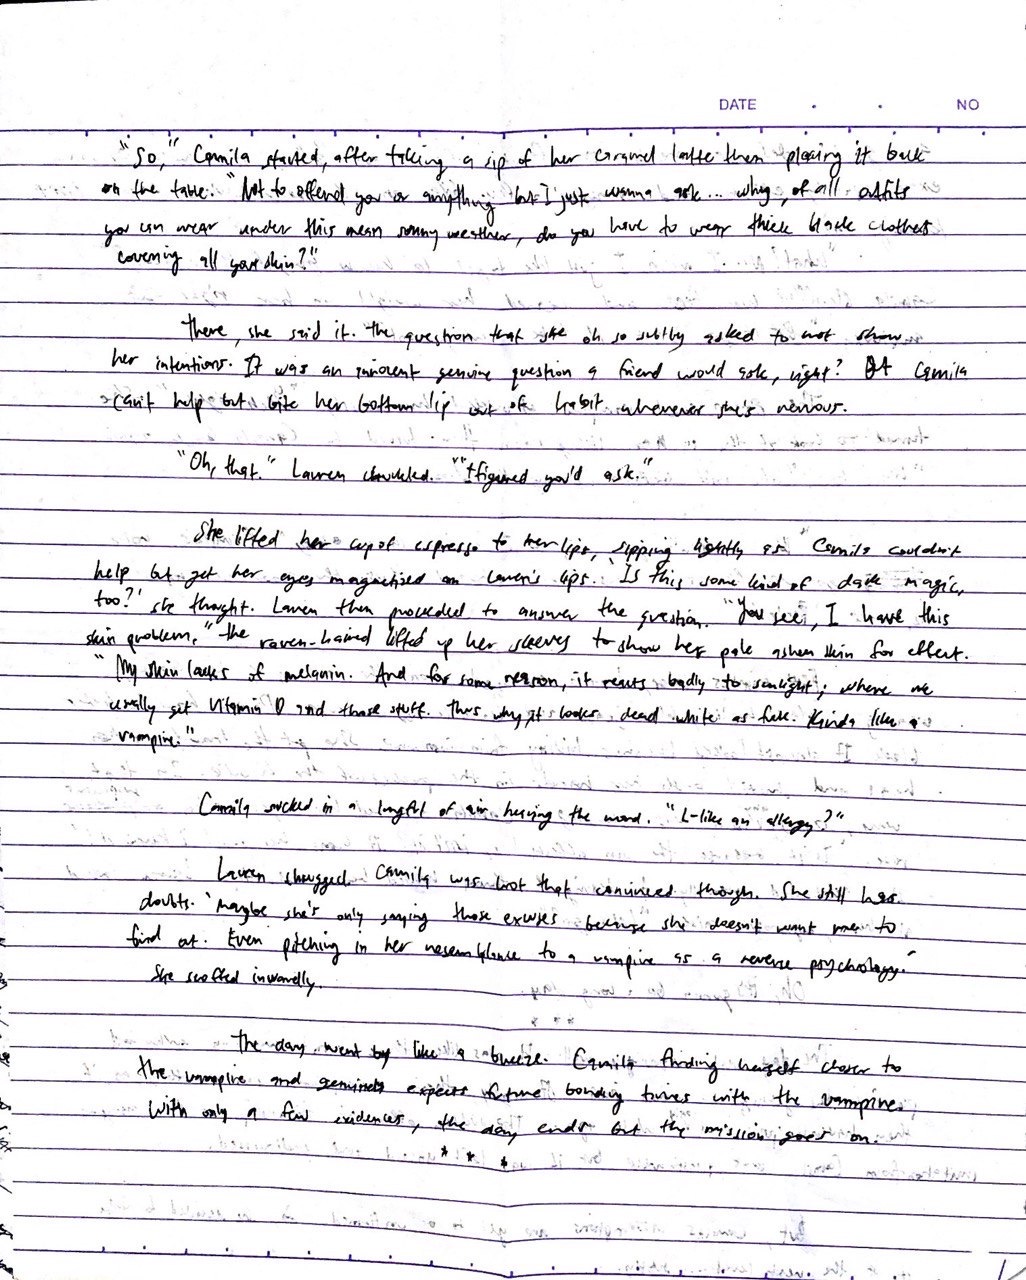 DATE . . NO
"So," Camila started, after taking a sip of her caramel latte then placing it back
on the table. "Not to offend you or anything but I just wanna ask... why, of all outfits
you can wear under this mean sunny weather, do you have to wear thick black clothes
covering all your skin?"
There, she said it. The question that she oh so subtly asked to not show
her intentions. It was an innocent genuine question a friend would ask, right? But Camila
can't help but bite her bottom lip out of habit whenever she's nervous.
"Oh, that." Lauren chuckled. "I figured you'd ask."
She lifted her cup of espresso to her lips, sipping lightly as Camila couldn't
help but get her eyes magnetised on Lauren's lips. 'Is this some kind of dark magic,
too?' she thought. Lauren then proceeded to answer the question. "You see, I have this
skin problem," the raven-haired lifted up her sleeves to show her pale ashen skin for effect.
"My skin lacks of melanin. And for some reason, it reacts badly to sunlight; where we
usually get Vitamin D and those stuff. Thus why it looks dead white as fuck. Kinda like a
vampire."
Camila sucked in a lungful of air hearing the word. "L-like an allergy?"
Lauren shrugged. Camila was not that convinced though. She still has
doubts. 'Maybe she's only saying those excuses because she doesn't want me to
find out. Even pitching in her resemblance to a vampire as a reverse psychology.'
She scoffed inwardly.
The day went by like a breeze. Camila finding herself closer to
the vampire and expects future bonding times with the vampire.
With only a few evidences, the day ends but the mission goes on.
* * *